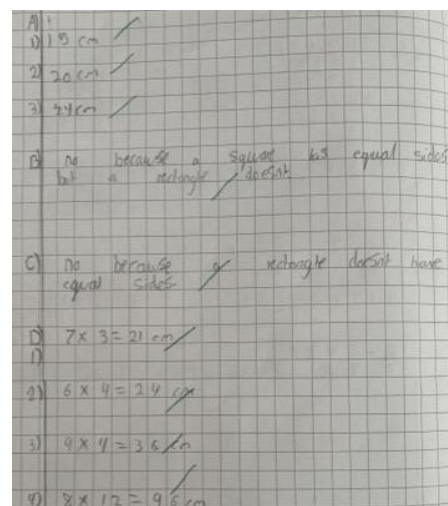 A)
1) 15 cm
2) 20 cm
3) 24cm
B) no because a square has equal sides
but a rectangle doesnt
C) no because a rectangle doesnt have
equal sides
D) 7 x 3 = 21 cm
1)
2) 6 x 4 = 24 cm
3) 9 x 4 = 36 cm
4) 8 x 12 = 96 cm